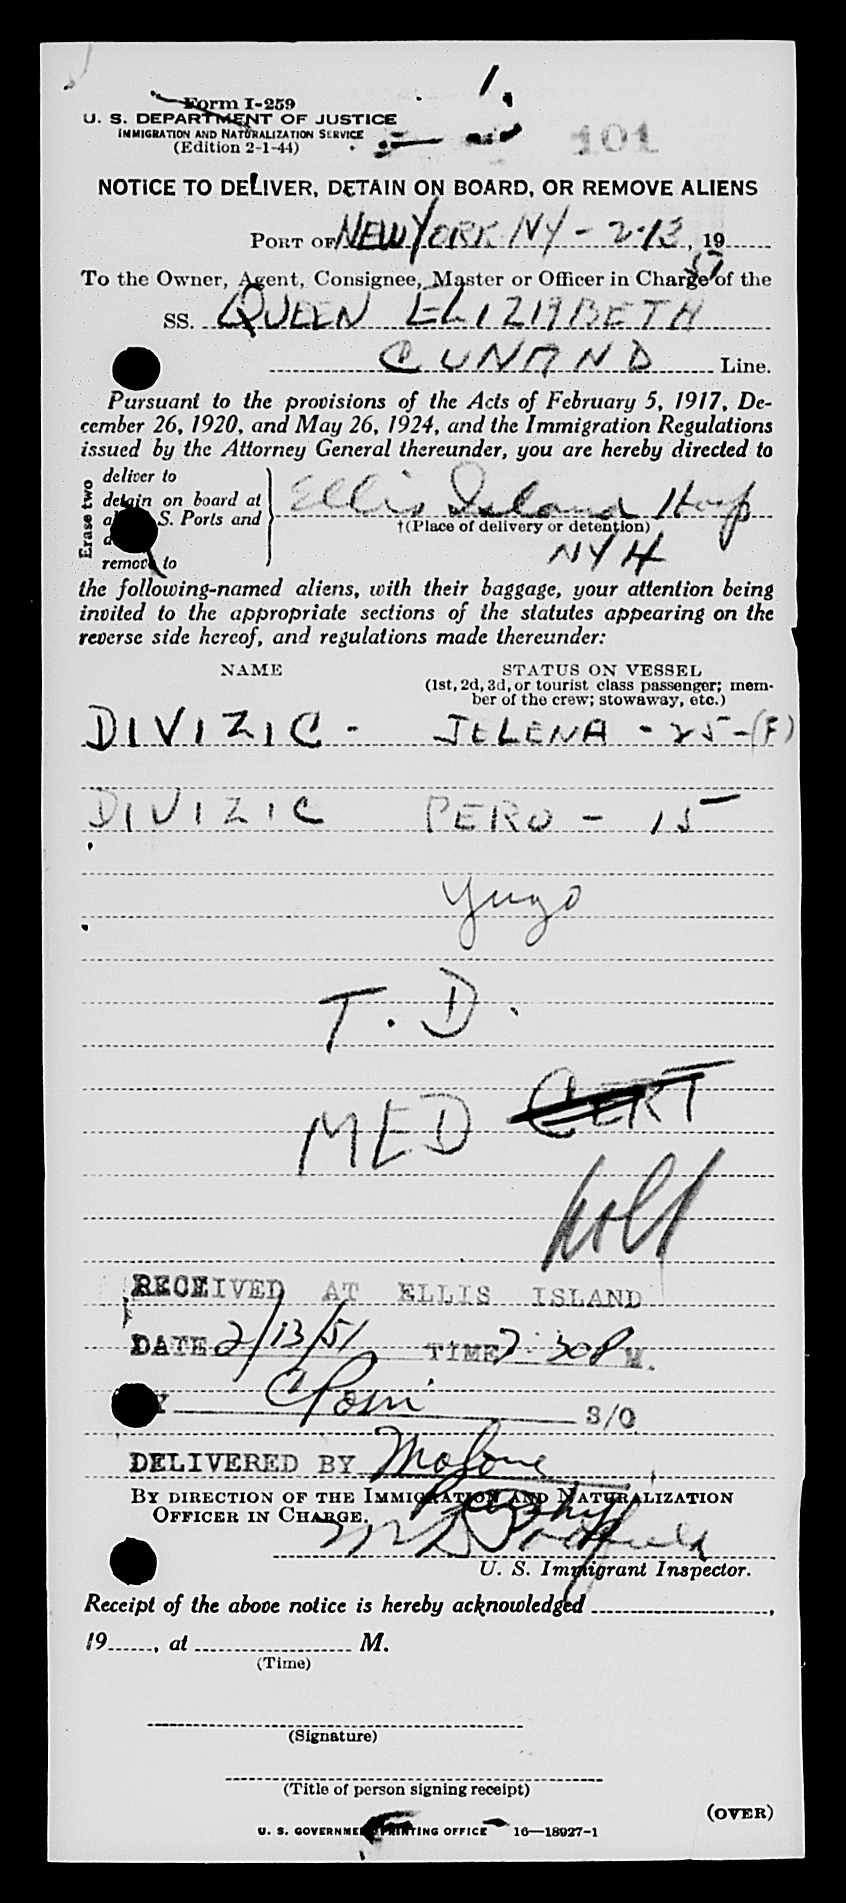 Form I-259
U. S. DEPARTMENT OF JUSTICE
IMMIGRATION AND NATURALIZATION SERVICE
(Edition 2-1-44)
101
NOTICE TO DELIVER, DETAIN ON BOARD, OR REMOVE ALIENS
PORT OF NEW YORK NY - 2-13, 19
To the Owner, Agent, Consignee, Master or Officer in Charge of the
SS. QUEEN ELIZABETH
CUNARD Line.
Pursuant to the provisions of the Acts of February 5, 1917, De-
cember 26, 1920, and May 26, 1924, and the Immigration Regulations
issued by the Attorney General thereunder, you are hereby directed to
Erase two
deliver to
detain on board at
S. Ports and
remove to
Ellis Island Hosp
†(Place of delivery or detention)
NYH
the following-named aliens, with their baggage, your attention being
invited to the appropriate sections of the statutes appearing on the
reverse side hereof, and regulations made thereunder:
NAME STATUS ON VESSEL
(1st, 2d, 3d, or tourist class passenger; mem-
ber of the crew; stowaway, etc.)
DIVIZIC - JELENA - 25 - (F)
DIVIZIC PERO - 15
Yugo
T. D.
MED CERT
RECEIVED AT ELLIS ISLAND
DATE 2/13/51 TIME 7:30 P M.
S/O
DELIVERED BY Malone
BY DIRECTION OF THE IMMIGRATION AND NATURALIZATION
OFFICER IN CHARGE.
U. S. Immigrant Inspector.
Receipt of the above notice is hereby acknowledged ,
19 , at M.
(Time)
(Signature)
(Title of person signing receipt)
(OVER)
U. S. GOVERNMENT PRINTING OFFICE 16—18927-1